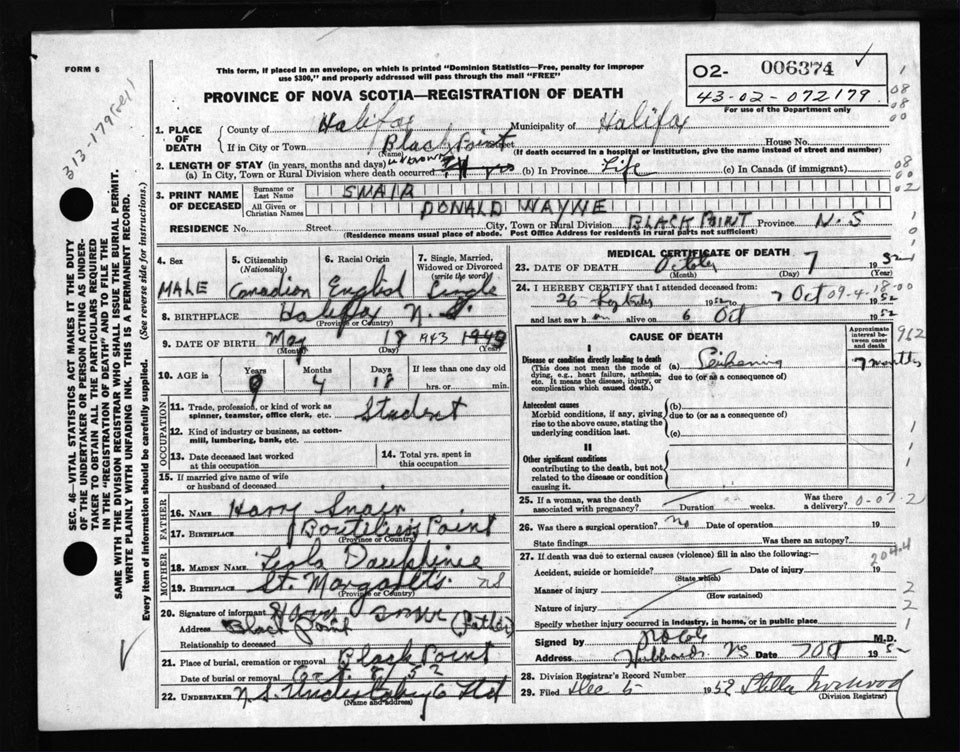 FORM 6
This form, if placed in an envelope, on which is printed "Dominion Statistics—Free, penalty for improper
use $300," and properly addressed will pass through the mail "FREE"
PROVINCE OF NOVA SCOTIA—REGISTRATION OF DEATH
O2- 006374
43-02-072179
For use of the Department only
3 13-179
SEC. 46—VITAL STATISTICS ACT MAKES IT THE DUTY
OF THE UNDERTAKER OR PERSON ACTING AS UNDER-
TAKER TO OBTAIN ALL THE PARTICULARS REQUIRED
IN THE "REGISTRATION OF DEATH" AND TO FILE THE
SAME WITH THE DIVISION REGISTRAR WHO SHALL ISSUE THE BURIAL PERMIT.
WRITE PLAINLY WITH UNFADING INK. THIS IS A PERMANENT RECORD.
Every item of information should be carefully supplied. (See reverse side for instructions.)
1. PLACE OF DEATH County of Halifax Municipality of Halifax
If in City or Town Black Point Street House No.
(Name) (If death occurred in a hospital or institution, give the name instead of street and number)
2. LENGTH OF STAY (in years, months and days)
(a) In City, Town or Rural Division where death occurred yrs (b) In Province Life (c) In Canada (if immigrant)
3. PRINT NAME OF DECEASED Surname or Last Name SNAIR
All Given or Christian Names DONALD WAYNE
RESIDENCE No. Street City, Town or Rural Division BLACK POINT Province N.S
(Residence means usual place of abode. Post Office Address for residents in rural parts not sufficient)
4. Sex MALE
5. Citizenship (Nationality) Canadian
6. Racial Origin English
7. Single, Married, Widowed or Divorced (write the word) Single
8. BIRTHPLACE Halifax N.S.
(Province or Country)
9. DATE OF BIRTH May 18 1943
(Month) (Day) (Year)
10. AGE in Years 9 Months 4 Days 18 If less than one day old
hrs. or min.
OCCUPATION
11. Trade, profession, or kind of work as
spinner, teamster, office clerk, etc. Student
12. Kind of industry or business, as cotton-
mill, lumbering, bank, etc.
13. Date deceased last worked
at this occupation
14. Total yrs. spent in
this occupation
15. If married give name of wife
or husband of deceased
FATHER
16. NAME Harry Snair
17. BIRTHPLACE Boutiliers Point
(Province or Country)
MOTHER
18. MAIDEN NAME Dauphinee
19. BIRTHPLACE St. Margarets NS
(Province or Country)
20. Signature of informant Harry Snair
Address Black Point (Father)
Relationship to deceased
21. Place of burial, cremation or removal Black Point
Date of burial or removal Oct 52
22. UNDERTAKER N.S. Undertaking Co Ltd
(Name and address)
MEDICAL CERTIFICATE OF DEATH
23. DATE OF DEATH October 7 1952
(Month) (Day) (Year)
24. I HEREBY CERTIFY that I attended deceased from:
26 1952 to 7 Oct 1952
09-4-18-00
and last saw h alive on 6 Oct 1952
CAUSE OF DEATH
Approximate interval between onset and death
962
I
Disease or condition directly leading to death
(This does not mean the mode of
dying, e.g., heart failure, asthenia,
etc. It means the disease, injury, or
complication which caused death.)
(a) 7 months
due to (or as a consequence of)
Antecedent causes
Morbid conditions, if any, giving
rise to the above cause, stating the
underlying condition last.
(b)
due to (or as a consequence of)
(c)
II
Other significant conditions
contributing to the death, but not
related to the disease or condition
causing it.
25. If a woman, was the death
associated with pregnancy? Duration weeks. Was there a delivery? 0-07-2
26. Was there a surgical operation? No Date of operation 19
State findings Was there an autopsy?
27. If death was due to external causes (violence) fill in also the following:
204.4
Accident, suicide or homicide? Date of injury 19
(State which)
Manner of injury 2
(How sustained)
Nature of injury 2
Specify whether injury occurred in industry, in home, or in public place 1
Signed by M.D.
Address Hubbards NS Date 7 Oct 1952
28. Division Registrar's Record Number
29. Filed Dec 5 1952 Stella
(Division Registrar)